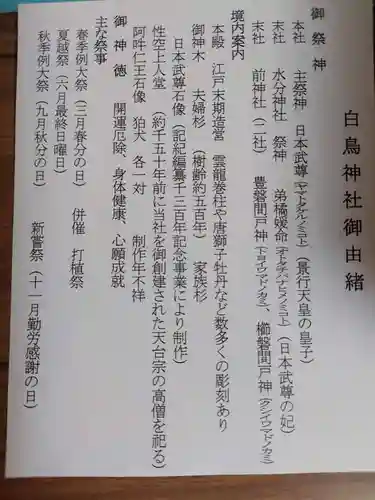 白鳥神社御由緒
御祭神
本社 主祭神 日本武尊(ヤマトタケルノミコト)(景行天皇の皇子)
末社 水分神社 祭神 弟橘媛命(オトタチバナヒメノミコト)(日本武尊の妃)
末社 前神社(二社) 豊磐間戸神(トヨイワマドノカミ)、櫛磐間戸神(クシイワマドノカミ)
境内案内
本殿 江戸末期造営 雲龍巻柱や唐獅子牡丹など数多くの彫刻あり
御神木 夫婦杉(樹齢約五百年) 家族杉
日本武尊石像(記紀編纂千三百年記念事業により制作)
性空上人堂 (約千五十年前に当社を御創建された天台宗の高僧を祀る)
阿吽仁王石像 狛犬 各一対 制作年不祥
御神徳 開運厄除、身体健康、心願成就
主な祭事
春季例大祭(三月春分の日) 併催 打植祭
夏越祭(六月最終日曜日)
秋季例大祭(九月秋分の日) 新嘗祭(十一月勤労感謝の日)